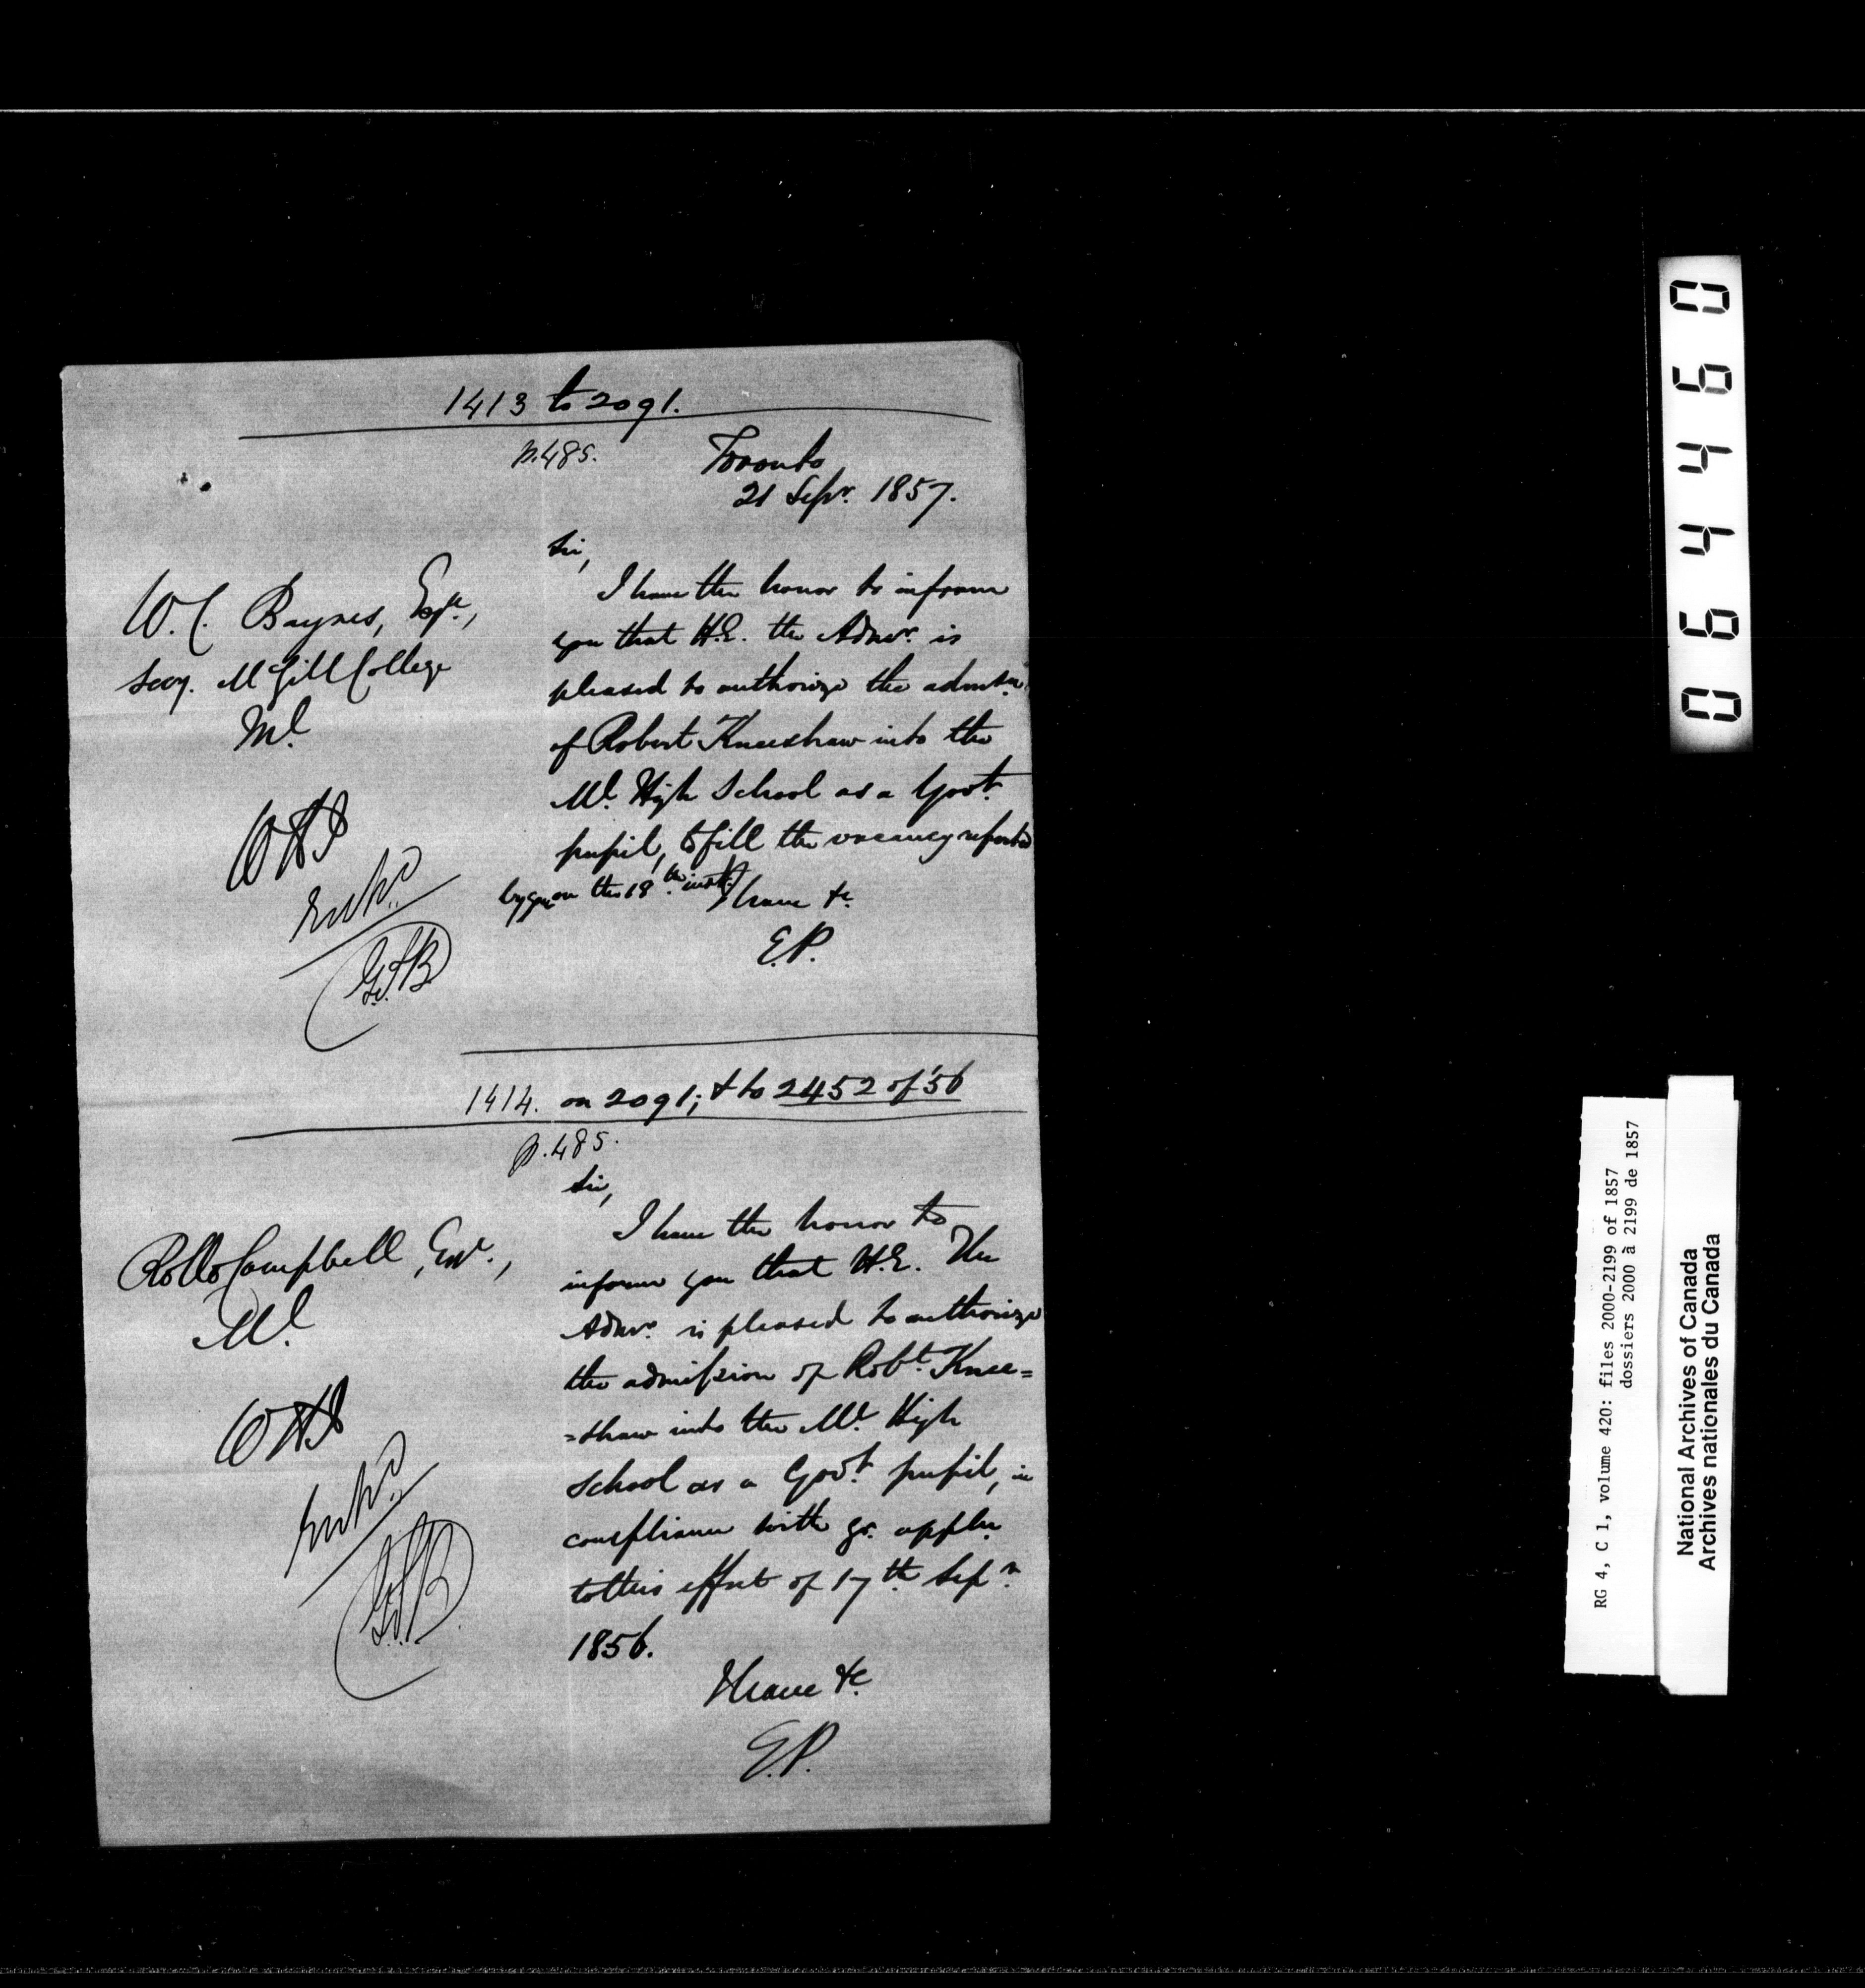 1413 to 2091.
p.485.
Toronto
21 Sepr. 1857.
W.C. Baynes, Esqr.,
Secy. McGill College
Ml.
Sir,
I have the honor to inform
you that H.E. the Admr. is
pleased to authorize the admissn.
of Robert Kneeshaw into the
Ml. High School as a Govt.
pupil, to fill the vacancy reported
by you on the 18th. inst.
I have &c.
E.P.
1414. on 2091; & to 2452 of '56
p.485.
Rollo Campbell, Esqr.,
Ml.
Sir,
I have the honor to
inform you that H.E. The
Admr. is pleased to authorize
the admission of Robt. Knee=
=shaw into the Ml. High
School as a Govt. pupil, in
compliance with yr. appln.
to this effect of 17th Sepr.
1856.
I have &c
E.P.
064460
RG 4, C 1, volume 420: files 2000-2199 of 1857
dossiers 2000 à 2199 de 1857
National Archives of Canada
Archives nationales du Canada